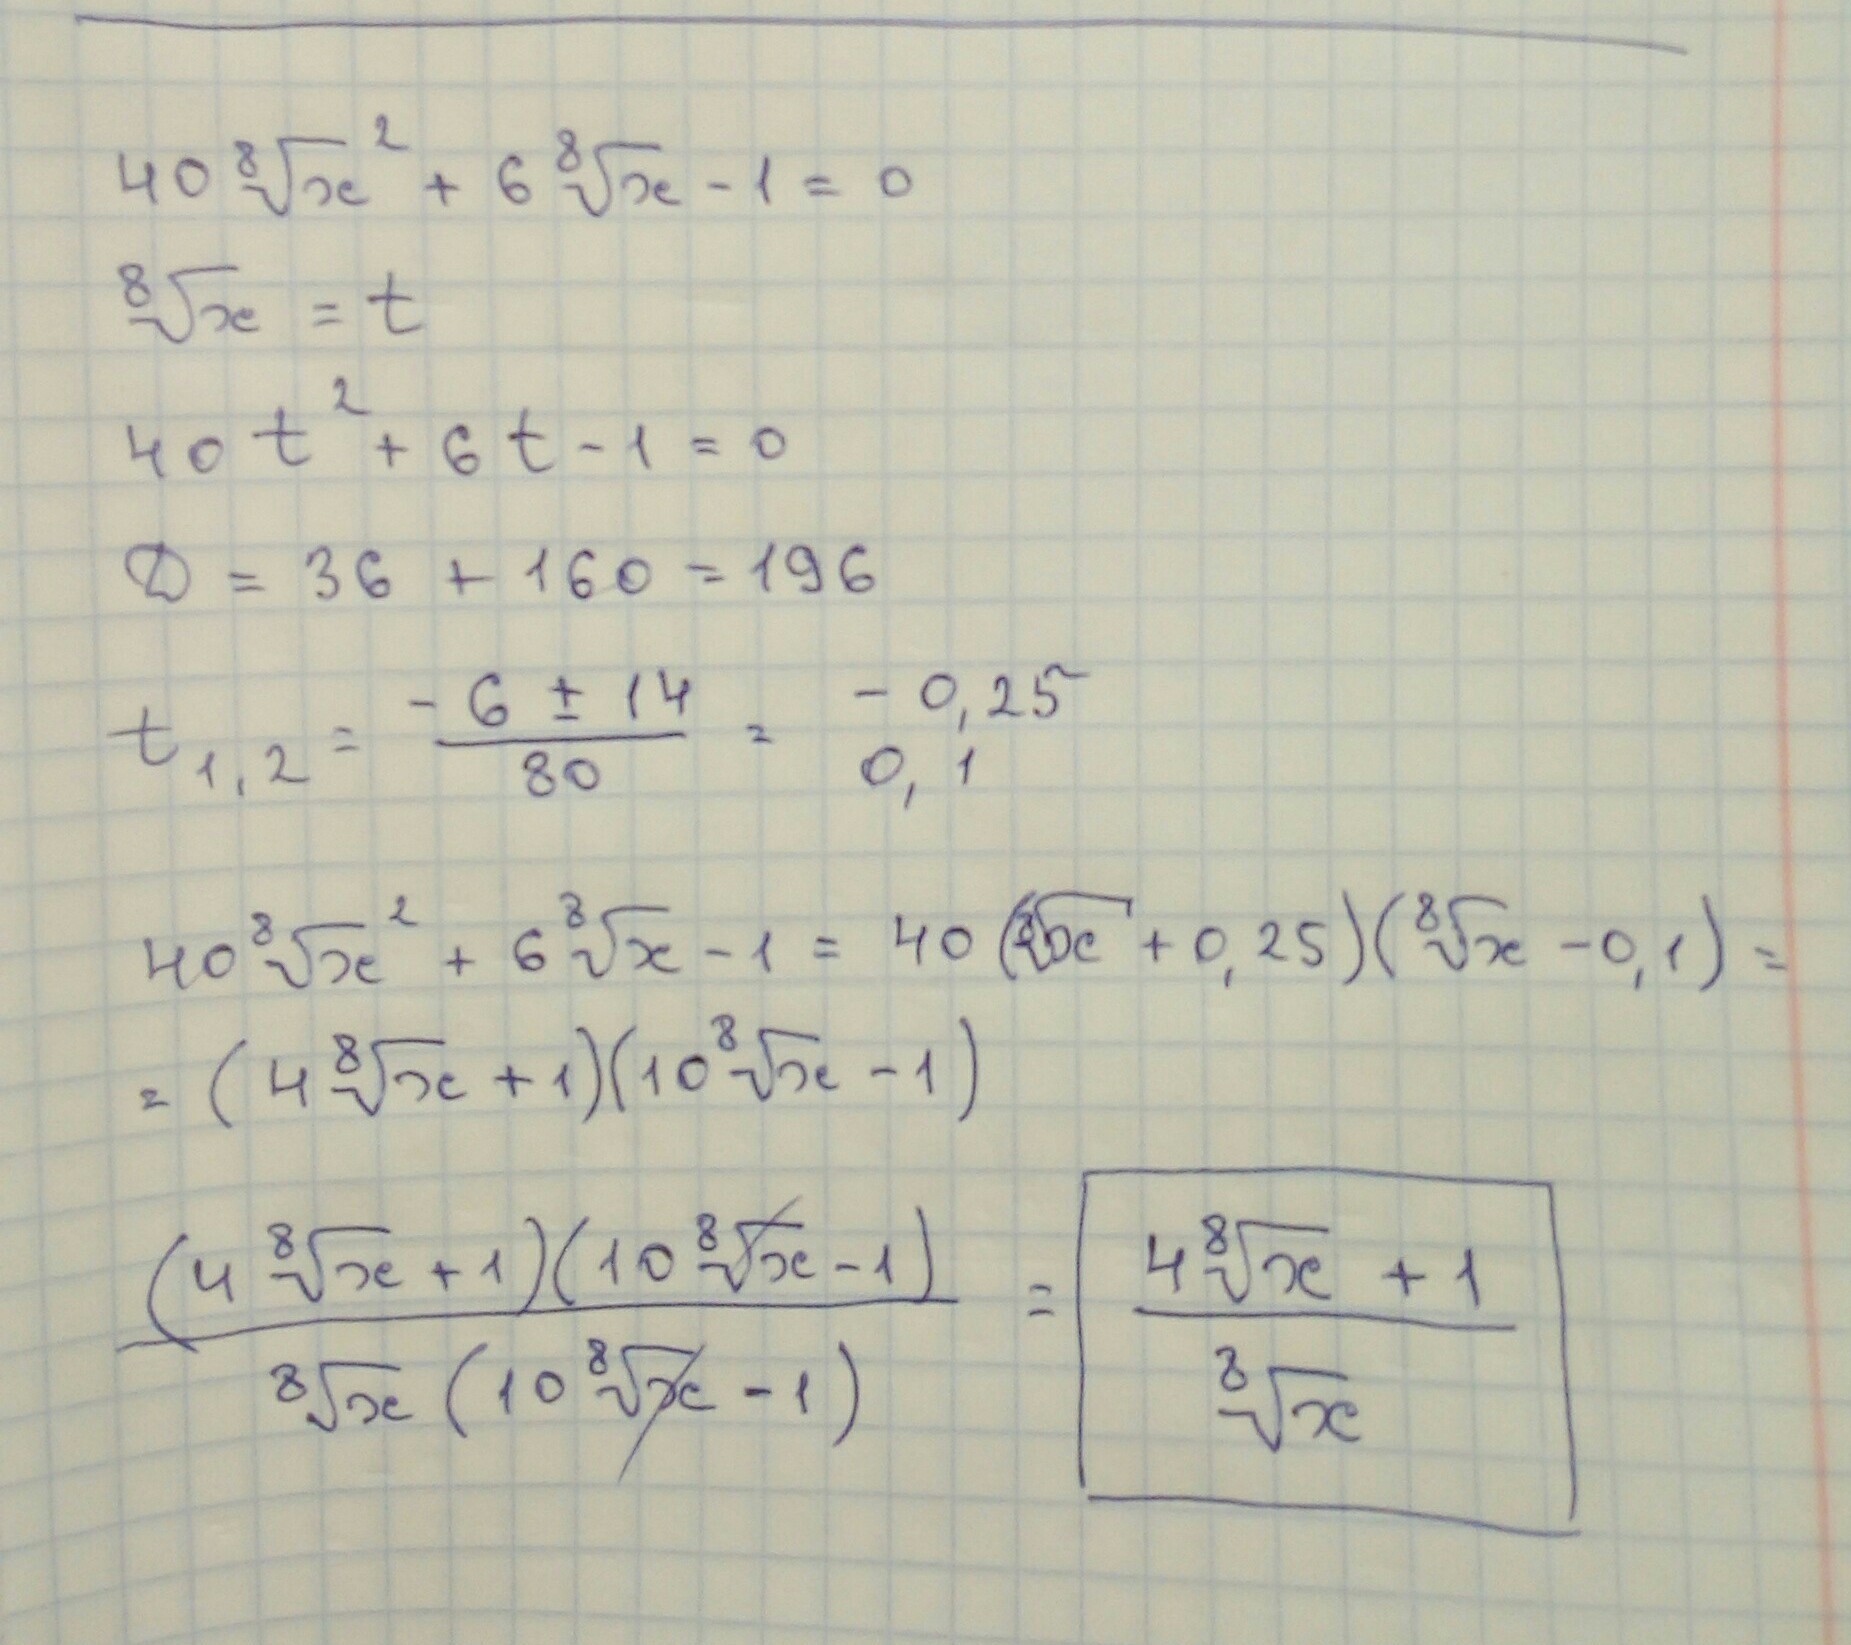 40 ⁸√x² + 6 ⁸√x - 1 = 0
⁸√x = t
40 t² + 6 t - 1 = 0
D = 36 + 160 = 196
t₁,₂ = (-6 ± 14)/80 = -0,25
0,1
40 ⁸√x² + 6 ⁸√x - 1 = 40 (⁸√x + 0,25)(⁸√x - 0,1) =
= (4 ⁸√x + 1)(10 ⁸√x - 1)
(4 ⁸√x + 1)(10 ⁸√x - 1) / ⁸√x (10 ⁸√x - 1) = (4 ⁸√x + 1) / ⁸√x